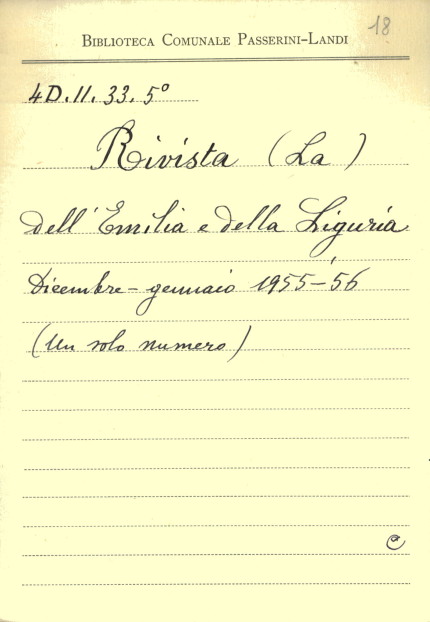 18
BIBLIOTECA COMUNALE PASSERINI-LANDI
4D.II.33.5°
Rivista (La)
dell'Emilia e della Liguria
Dicembre - gennaio 1955-'56
(Un solo numero)
e